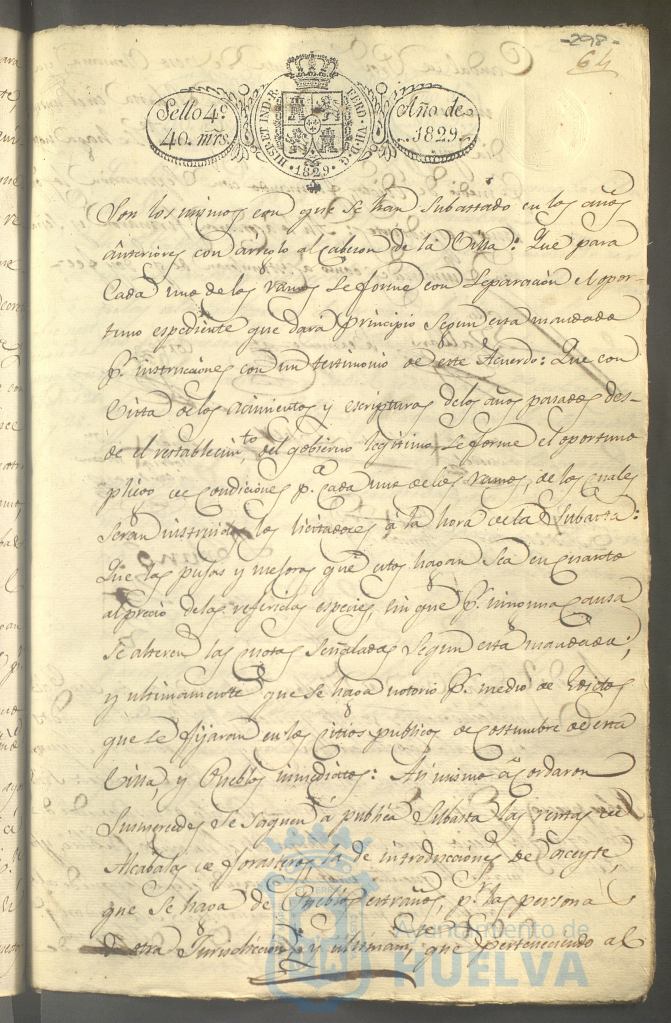 -298-
64
Sello 4º
40. mrs.
HISP. ET IND. R.
FERD. VII. D. G.
1829
Año de
1829.
Son los mismos con que se han subastado en los años
anteriores con arreglo al Cabezon de la Villa: Que para
Cada uno de los ramos se forme con separacion el opor-
tuno espediente que dara principio segun esta mandado
pr. instrucciones con un testimonio de este Acuerdo: Que con
Vista de los acimientos y escripturas de los años pasados des-
de el restablecimto. del gobierno legitimo, se forme el oportuno
pliego de Condiciones pa. Cada uno de los ramos, de los cuales
seran instruidos los licitadores á la hora de la Subasta:
Que las pujas y mejoras que estos hagan sea en cuanto
al precio de las referidas especies, sin que pr. ninguna Causa
se alteren las cuotas señaladas segun esta mandado;
y ultimamente que se haga notorio pr. medio de Edictos
que se fijaran en los Citios publicos de costumbre de esta
Villa, y Pueblos inmediatos: Asi mismo acordaron
Susmercedes se saquen á publica Subasta las rentas de
Alcabalas de forasteros, la de introducciones de aceyte,
que se haga de Pueblos extraños, pr. las persona
de otra Jurisdiccion, y ultimamte. que perteneciendo al
Ayuntamiento de
HUELVA